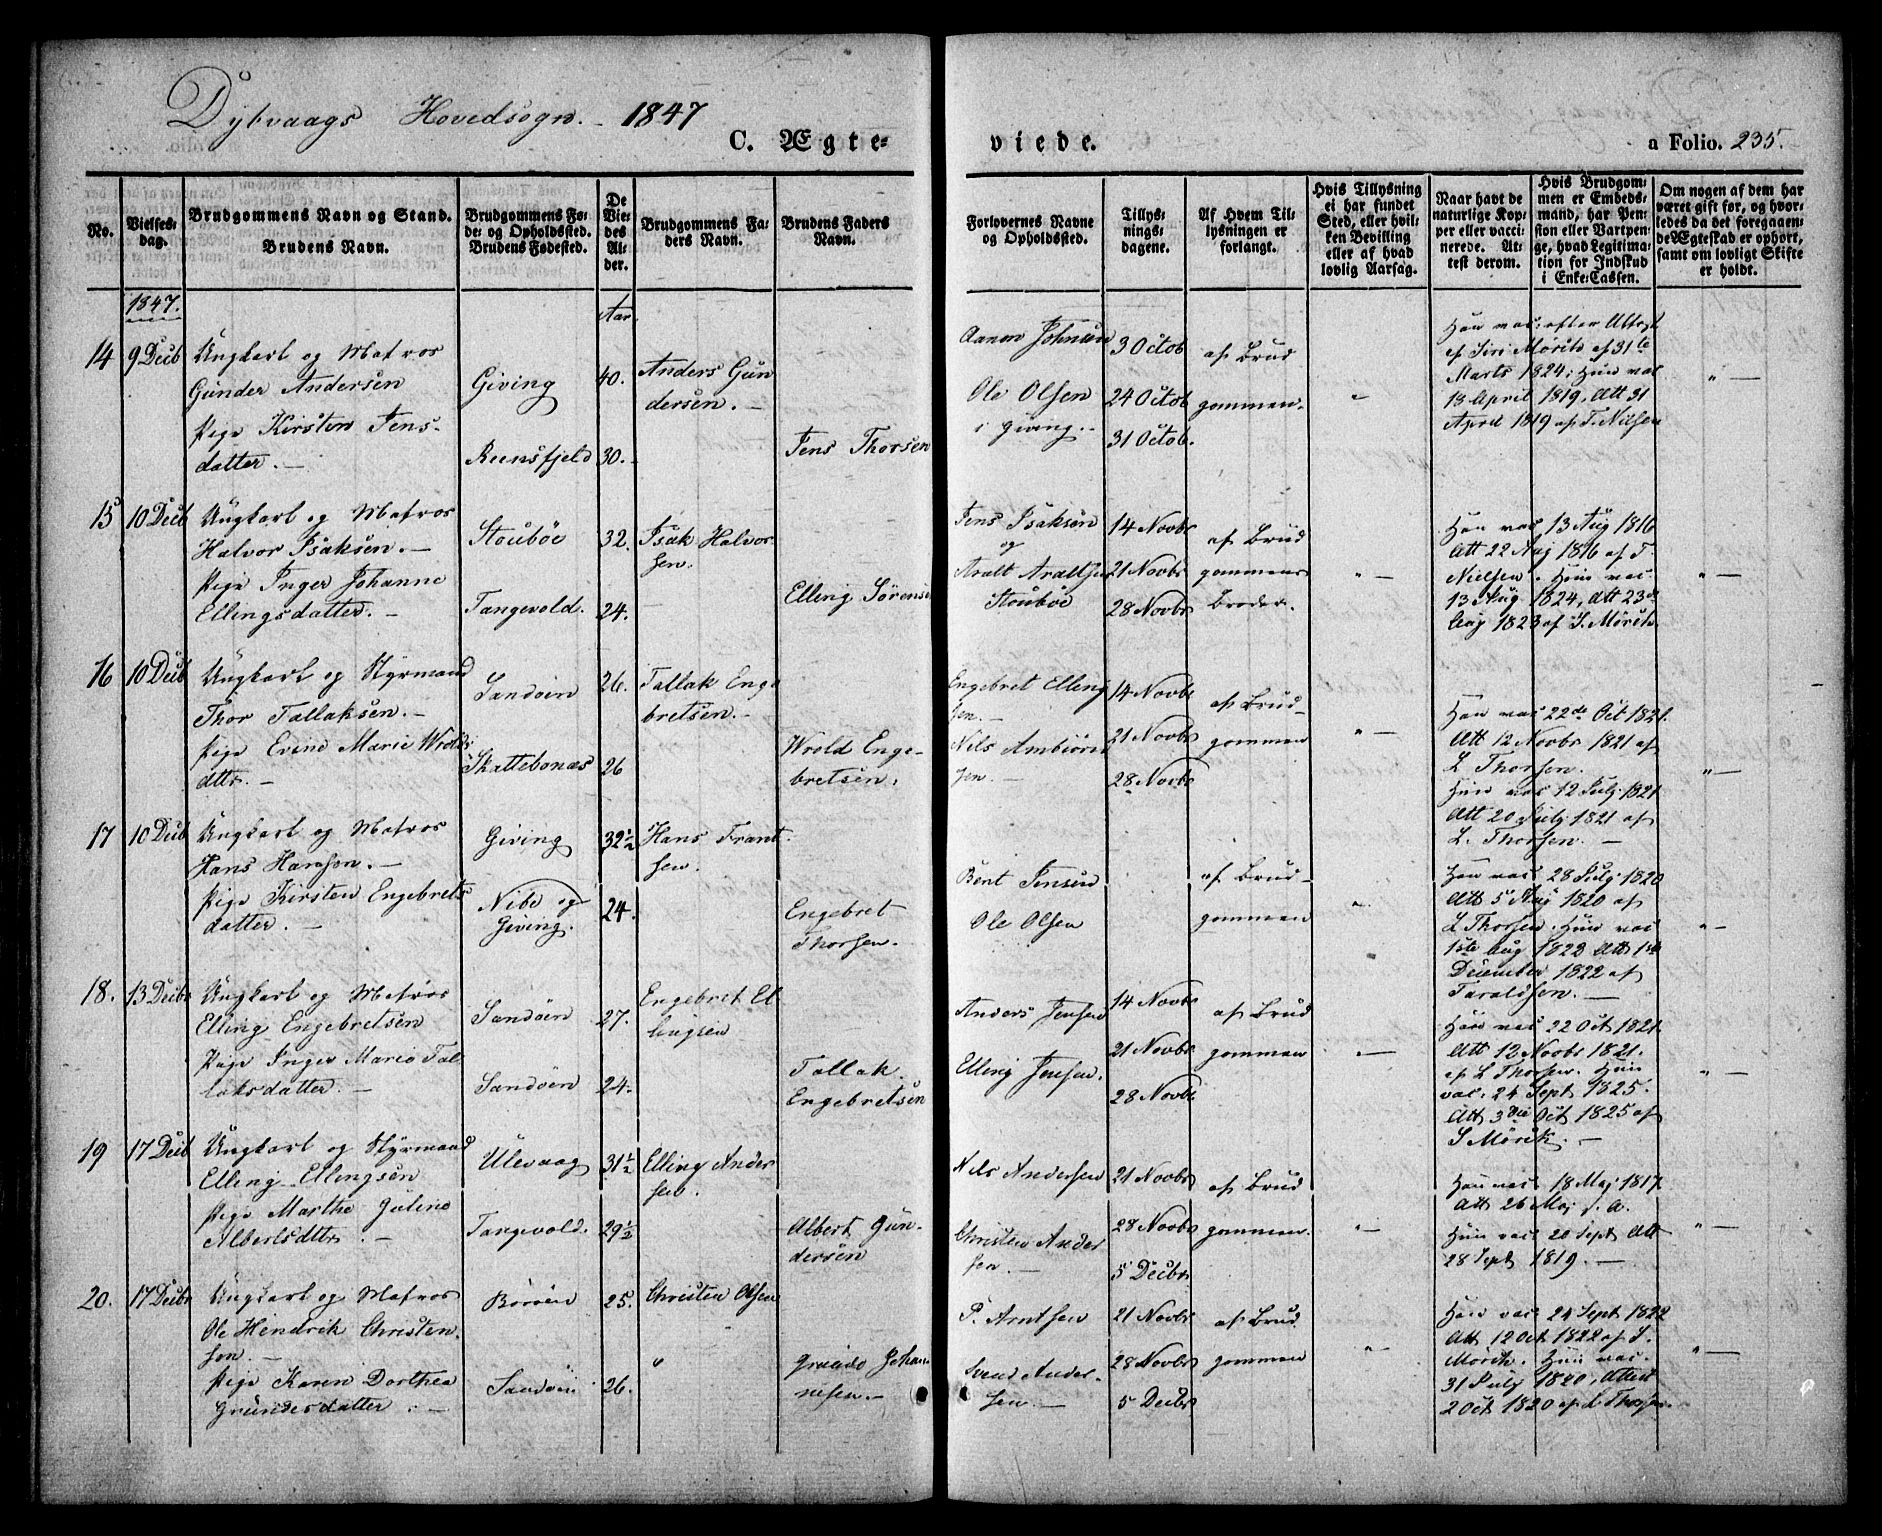 Dybvaags Hovedsogn. 1847
C. Ægte- viede. a Folio. 235.
No.
Vielses-
dag.
Brudgommens Navn og Stand.
Brudens Navn.
Brudgommens Fø-
de- og Opholdssted.
Brudens Fødested.
De
Vie-
des
Al-
der.
Brudgommens Fa-
ders Navn.
Brudens Faders
Navn.
Forlovernes Navne
og Opholdssted.
Tillys-
nings-
dagene.
Af Hvem Til-
lysningen er
forlangt.
Hvis Tillysning
ei har fundet
Sted, eller hvil-
ken Bevilling
eller af hvad
lovlig Aarsag.
Naar havt de
naturlige Kop-
per eller vacci-
nerede. At-
test derom.
Hvis Brudgom-
men er Embeds-
mand, har Pen-
sion eller Vartpen-
ge, hvad Legitima-
tion for Indskud
i Enke-Cassen.
Om nogen af dem har
været gift før, og hvor-
ledes da det foregaaen-
de Ægteskab er ophørt,
samt om lovligt Skifte
er holdt.
1847.
Aar.
14
9 Decb
Ungkarl og Matros
Gunder Andersen
Pige Kirsten Jens-
datter.
Giving
Reensfjeld
40.
30.
Anders Gun
dersen.
Jens Thorsen
Aanon Johnsen
Ole Olsen
i Giving.
3 Octob
24 Octob
31 Octob.
af Brud
gommen
Han vac: efter Attest
af Siri Mörits af 31te
Marts 1824; Hun vac
13 April 1819, Att 31
April 1819 af T. Nilsen
15
10 Decb
Ungkarl og Matros
Halvor Isaksen.
Pige Inger Johanne
Ellingsdatter.
Stoubøe
Tangevold.
32.
24.
Isak Halvor
sen.
Elling Sørensen
Jens Isaksen
og
Aralt Araltsen
Stoubøe
14 Novbr
21 Novbr
28 Novbr
af Brud
gommens
Broder.
Han vac 13 Aug 1816
Att 22 Aug 1816 af T.
Nielsen. Hun vac
13 Aug 1824, Att 23de
Aug 1823 af S. Mörits.
16
10 Decb
Ungkarl og Styrmand
Thor Tallaksen.
Pige Evine Marie Wrolds
dttr.
Sandøen
Skattebonæs
26.
26
Tallak Enge
bretsen.
Wrold Enge-
bretsen.
Engebret Elling
sen.
Nils Ambiörn
sen.
14 Novbr
21 Novbr
28 Novbr
af Brud-
gommen
Han vac 22de Oct 1821.
Att 12 Novbr 1821 af
L Thorsen.
Hun vac 12 July 1821
Att 20 July 1821 af
L. Thorsen.
17
10 Decb
Ungkarl og Matros
Hans Hansen.
Pige Kirsten Engebrets
datter.
Giving
Nibe og
Giving.
32½
24.
Hans Frant
sen.
Engebret
Thorsen.
Bent Jensen
Ole Olsen
af Brud-
gommen
Han vac 28 July 1820
Att 5 Aug 1820 af
L Thorsen. Hun vac
1ste Aug 1822 Att 1ste
December 1822 af
Taraldsen.
18.
13 Decbr
Ungkarl og Matros
Elling Engebretsen
Pige Inger Marie Tal
laksdatter.
Sandøen
Sandøen
27.
24.
Engebret El
lingsen
Tallak
Engebretsen
Anders Jensen
Elling Jensen.
14 Novbr
21 Novbr
28 Novbr
af Brud
gommen
Han vac 22 Oct 1821.
Att 12 Novbr 1821.
af L Thorsen. Hun
vac. 24 Sept 1825.
Att 3die Oct 1825 af
S Mörik.
19
17 Decb
Ungkarl og Styrmand
Elling Ellingsen
Pige Marthe Guline
Albertsdttr.
Ulevaag
Tangevold.
31½
29½
Elling Ander
sen.
Albert Gun-
dersen
Nils Andersen
Christen Ander
sen.
21 Novbr
28 Novbr
5 Decbr
af Brud
gommen.
Han vac. 18 Maj 1817.
Att 26 Maj s. A.
Hun vac 20 Sept Att
28 Sept 1819.
20.
17 Decbr
Ungkarl og Matros
Ole Hendrik Christen.
sen.
Pige Karen Dorthea
Grundesdatter.
Borøen
Sandøen
25.
26.
Christen Olsen
Grunde Johan
nesen.
P. Arntsen
Svend Ander-
sen.
21 Novbr
28 Novbr
5 Decbr
af Brud
gommen
Han vac 24 Sept 1822
Att 12 Oct 1822 af S.
Mörik. Hun vac.
31 July 1820, Attest
2 Oct 1820 af L Thorsen